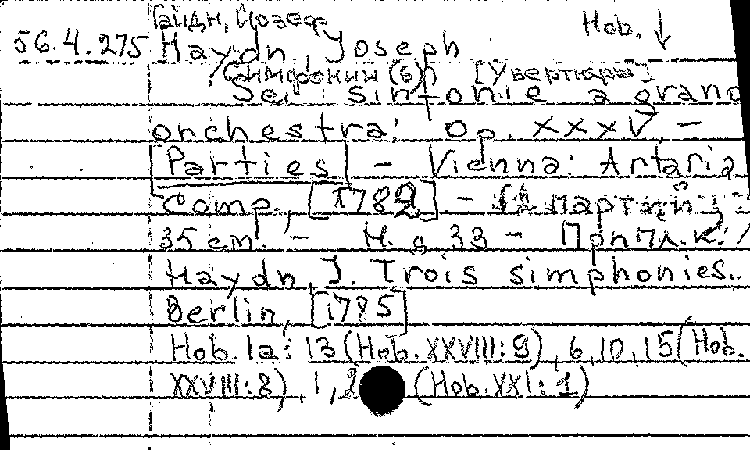 Гайдн, Йозеф Hob. ↓
56.4.275 Haydn, Joseph
Симфонии (6) [Увертюры]
Sei sinfonie a grand
orchestra: Op. XXXV —
Parties — Vienna: Artaria
comp., [1782] — партий;
35 см. — Н. д. 33 — Припл. к:
Haydn, J. Trois simphonies.
Berlin, [1785]
Hob. Ia: 13 (Hob. XXVIII:9), 6, 10, 15 (Hob.
XXVIII:8), 1, 2 (Hob. XXI:1)